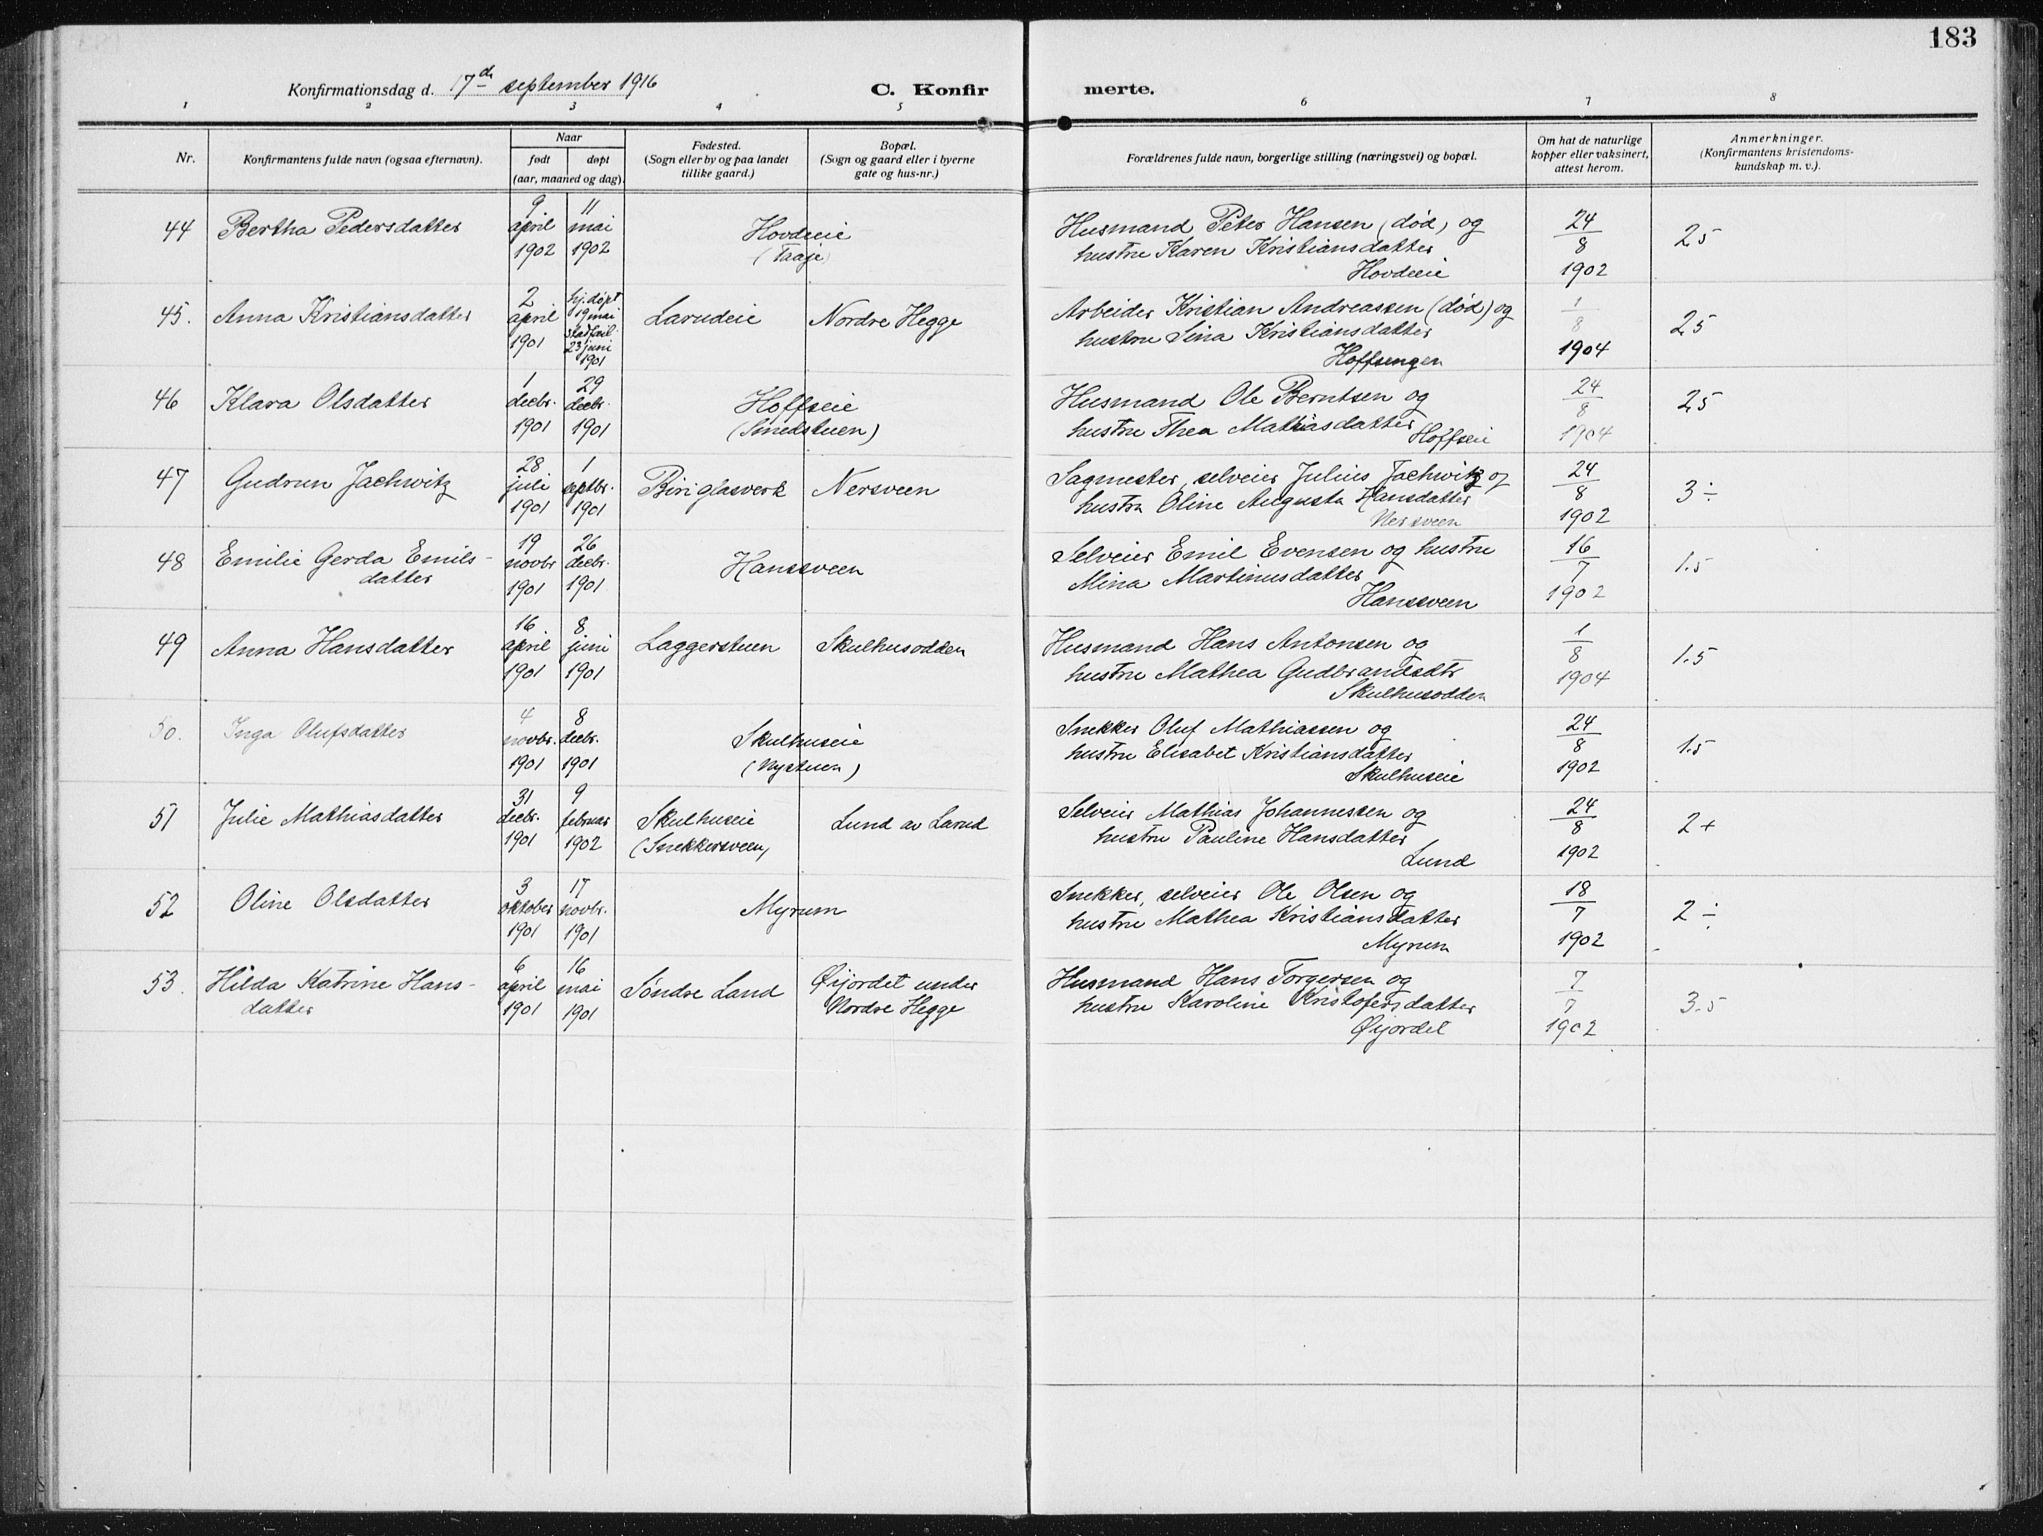 183
Konfirmationsdag d. 17de september 1916
C. Konfirmerte.
1 2 3 4 5 6 7 8
Nr.
Konfirmantens fulde navn (ogsaa efternavn).
Naar
født døpt
(aar, maaned og dag).
Fødested.
(Sogn eller by og paa landet
tillike gaard.)
Bopæl.
(Sogn og gaard eller i byerne
gate og hus-nr.)
Forældrenes fulde navn, borgerlige stilling (næringsvei) og bopæl.
Om hat de naturlige
kopper eller vaksinert,
attest herom.
Anmerkninger.
(Konfirmantens kristendoms-
kundskap m. v.).
44 Bertha Pedersdatter
9 april 1902
11 mai 1902
Hovdeie
(Taaje)
Husmand Peter Hansen (død) og
hustru Karen Kristiansdatter
Hovdeie
24/8 1902
2.5
45. Anna Kristiansdatter
2 april 1901
hj.døpt
19 mai
stadf.
23 juni
1901
Larudeie
Nordre Hegge
Arbeider Kristian Andreassen (død) og
hustru Lina Kristiansdatter
Hoffsengen
1/8 1904
2.5
46 Klara Olsdatter
1 decbr. 1901
29 decbr. 1901
Hoffseie
(Smedstuen)
Husmand Ole Berntsen og
hustru Thea Mathiasdatter
Hoffseie
24/8 1904
2.5
47 Gudrun Jachwitz
28 juli 1901
1 septbr. 1901
Biri glasverk
Nersveen
Sagmester, selveier Julius Jachwitz og
hustru Oline Augusta Hansdatter
Nersveen
24/8 1902
3 ÷
48 Emilie Gerda Emils-
datter
19 novbr 1901
26 decbr. 1901
Hansveen
Selveier Emil Evensen og hustru
Mina Martinusdatter
Hansveen
16/7 1902
1.5
49 Anna Hansdatter
16 april 1901
8 juni 1901
Laggerstuen
Skulhusodden
Husmand Hans Antonsen og
hustru Mathea Gudbrandsdtr
Skulhusodden
1/8 1904
1.5
50. Inga Olufsdatter
4 novbr. 1901
8 decbr. 1901
Skulhuseie
(Nystuen)
Snekker Oluf Mathiassen og
hustru Elisabet Kristiansdatter
Skulhuseie
24/8 1902
1.5
51 Julie Mathiasdatter
31 decbr. 1901
9 februar 1902
Skulhuseie
(Snekkersveen)
Lund av Larud
Selveier Mathias Johannessen og
hustru Pauline Hansdatter
Lund
24/8 1902
2 +
52 Oline Olsdatter
3 oktober 1901
17 novbr. 1901
Myrum
Snekker, selveier Ole Olsen og
hustru Mathea Kristiansdatter
Myrum
18/7 1902
2 ÷
53. Hilda Katrine Hans-
datter
6 april 1901
16 mai 1901
Søndre Land
Øijordet under
Nordre Hegge
Husmand Hans Torgersen og
hustru Karoline Kristofersdatter
Øijordet
7/7 1902
3.5